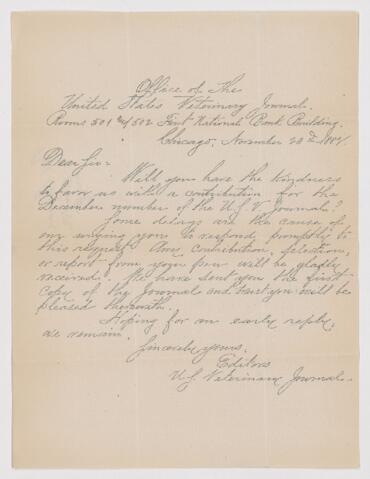 Office of the
United States Veterinary Journal.
Rooms 501 and 502 First National Bank Building.
Chicago, November 20th 1884.
Dear Sir:
Will you have the kindness
to favor us with a contribution for the
December number of the U.S.V. Journal?
Some delays are the cause of
our urging you to respond promptly to
this request. Any contribution, selection,
or report from your pen will be gladly
received. We have sent you the first
copy of the Journal and trust you will be
pleased therewith.
Hoping for an early reply,
we remain.
Sincerely yours,
Editors
U.S. Veterinary Journal.